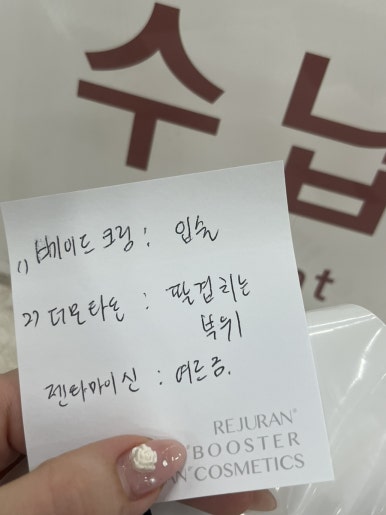 수납
nt
1) 베이드 크림 : 입술
2) 더모타손 : 팔겹치는
부위
젠타마이신 : 여드름.
REJURAN®
BOOSTER
N®COSMETICS